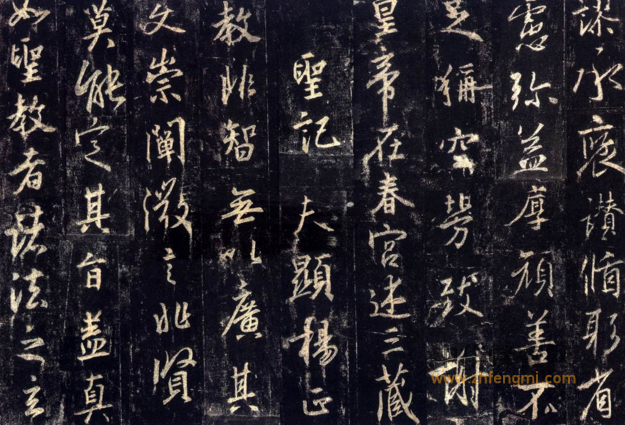 謬承褒讚循躬省
慮弥益厚顔善不
足稱空勞致謝
皇帝在春宮述三藏
聖記 夫顯揚正
教非智無以廣其
文崇闡微言非賢
莫能定其旨盖真
如聖教者諸法之玄
www.zhfengmi.com